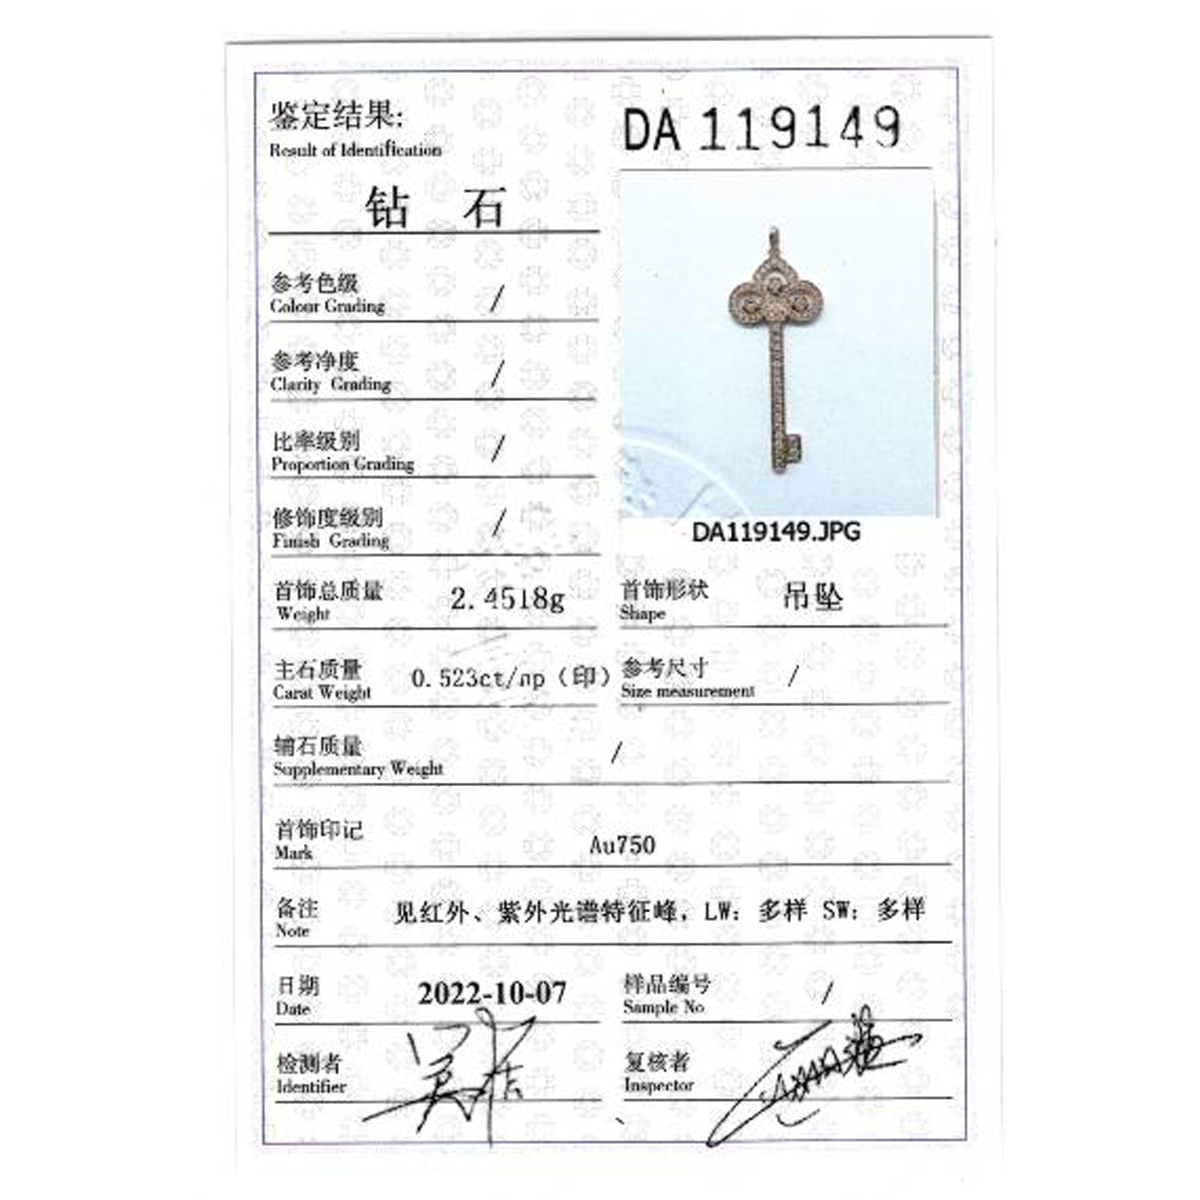 鉴定结果:
Result of Identification
DA 119149
钻 石
参考色级
Colour Grading
/
参考净度
Clarity Grading
/
比率级别
Proportion Grading
/
修饰度级别
Finish Grading
/
DA119149.JPG
首饰总质量
Weight
2.4518g
首饰形状
Shape
吊坠
主石质量
Carat Weight
0.523ct/np（印）
参考尺寸
Size measurement
/
辅石质量
Supplementary Weight
/
首饰印记
Mark
Au750
备注
Note
见红外、紫外光谱特征峰，LW：多样 SW：多样
日期
Date
2022-10-07
样品编号
Sample No
/
检测者
Identifier
复核者
Inspector